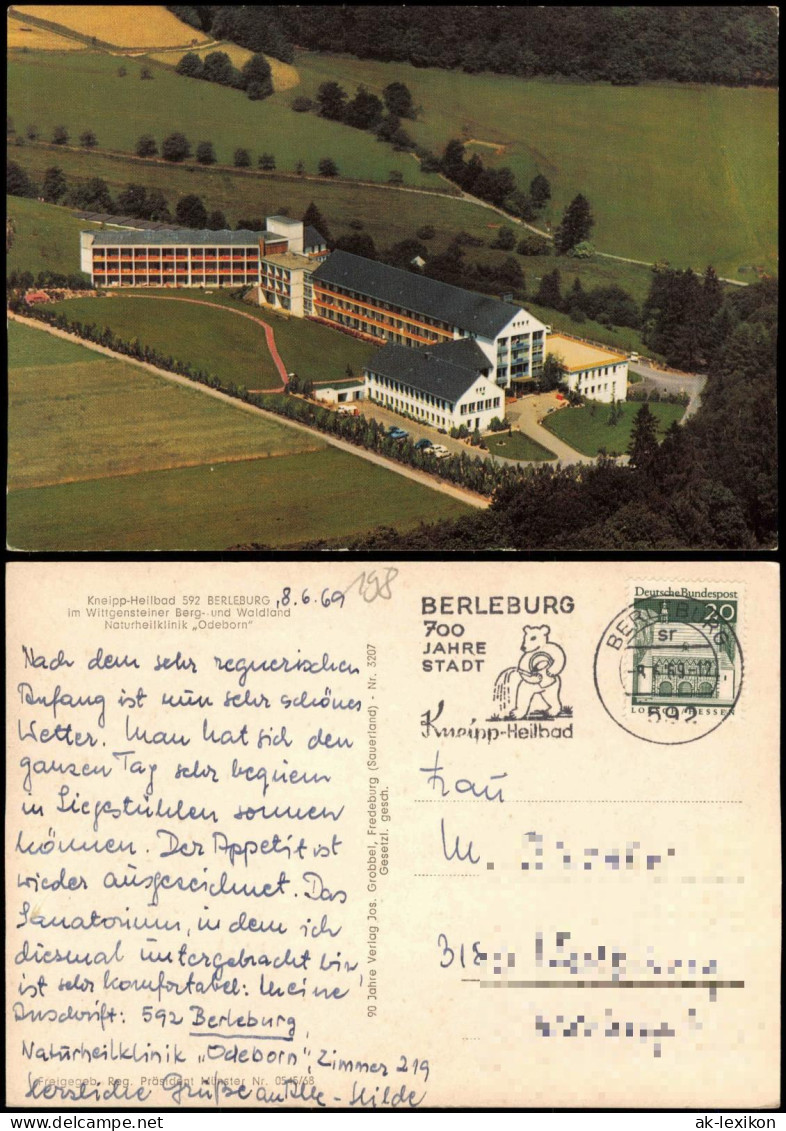 Kneipp-Heilbad 592 BERLEBURG
im Wittgensteiner Berg- und Waldland
Naturheilklinik „Odeborn"
8.6.69
198
Nach dem sehr regnerischen
Anfang ist nun sehr schönes
Wetter. Man hat sich den
ganzen Tag sehr bequem
in Liegestühlen sonnen
können. Der Appetit ist
wieder ausgezeichnet. Das
Sanatorium, in dem ich
diesmal untergebracht bin,
ist sehr komfortabel: Meine
Anschrift: 592 Berleburg,
Naturheilklinik „Odeborn", Zimmer 219
Freigegeb. Reg. Präsident Münster Nr. 0545/68
Herzliche Grüße an Alle - Hilde
90 Jahre Verlag Jos. Grobbel, Fredeburg (Sauerland) - Nr. 3207
Gesetzl. gesch.
BERLEBURG
700
JAHRE
STADT
Kneipp-Heilbad
BERLEBURG
sr
69-12
592
Deutsche Bundespost
20
Frau
M.
318
ak-lexikon.de
DELCAMPE.NET